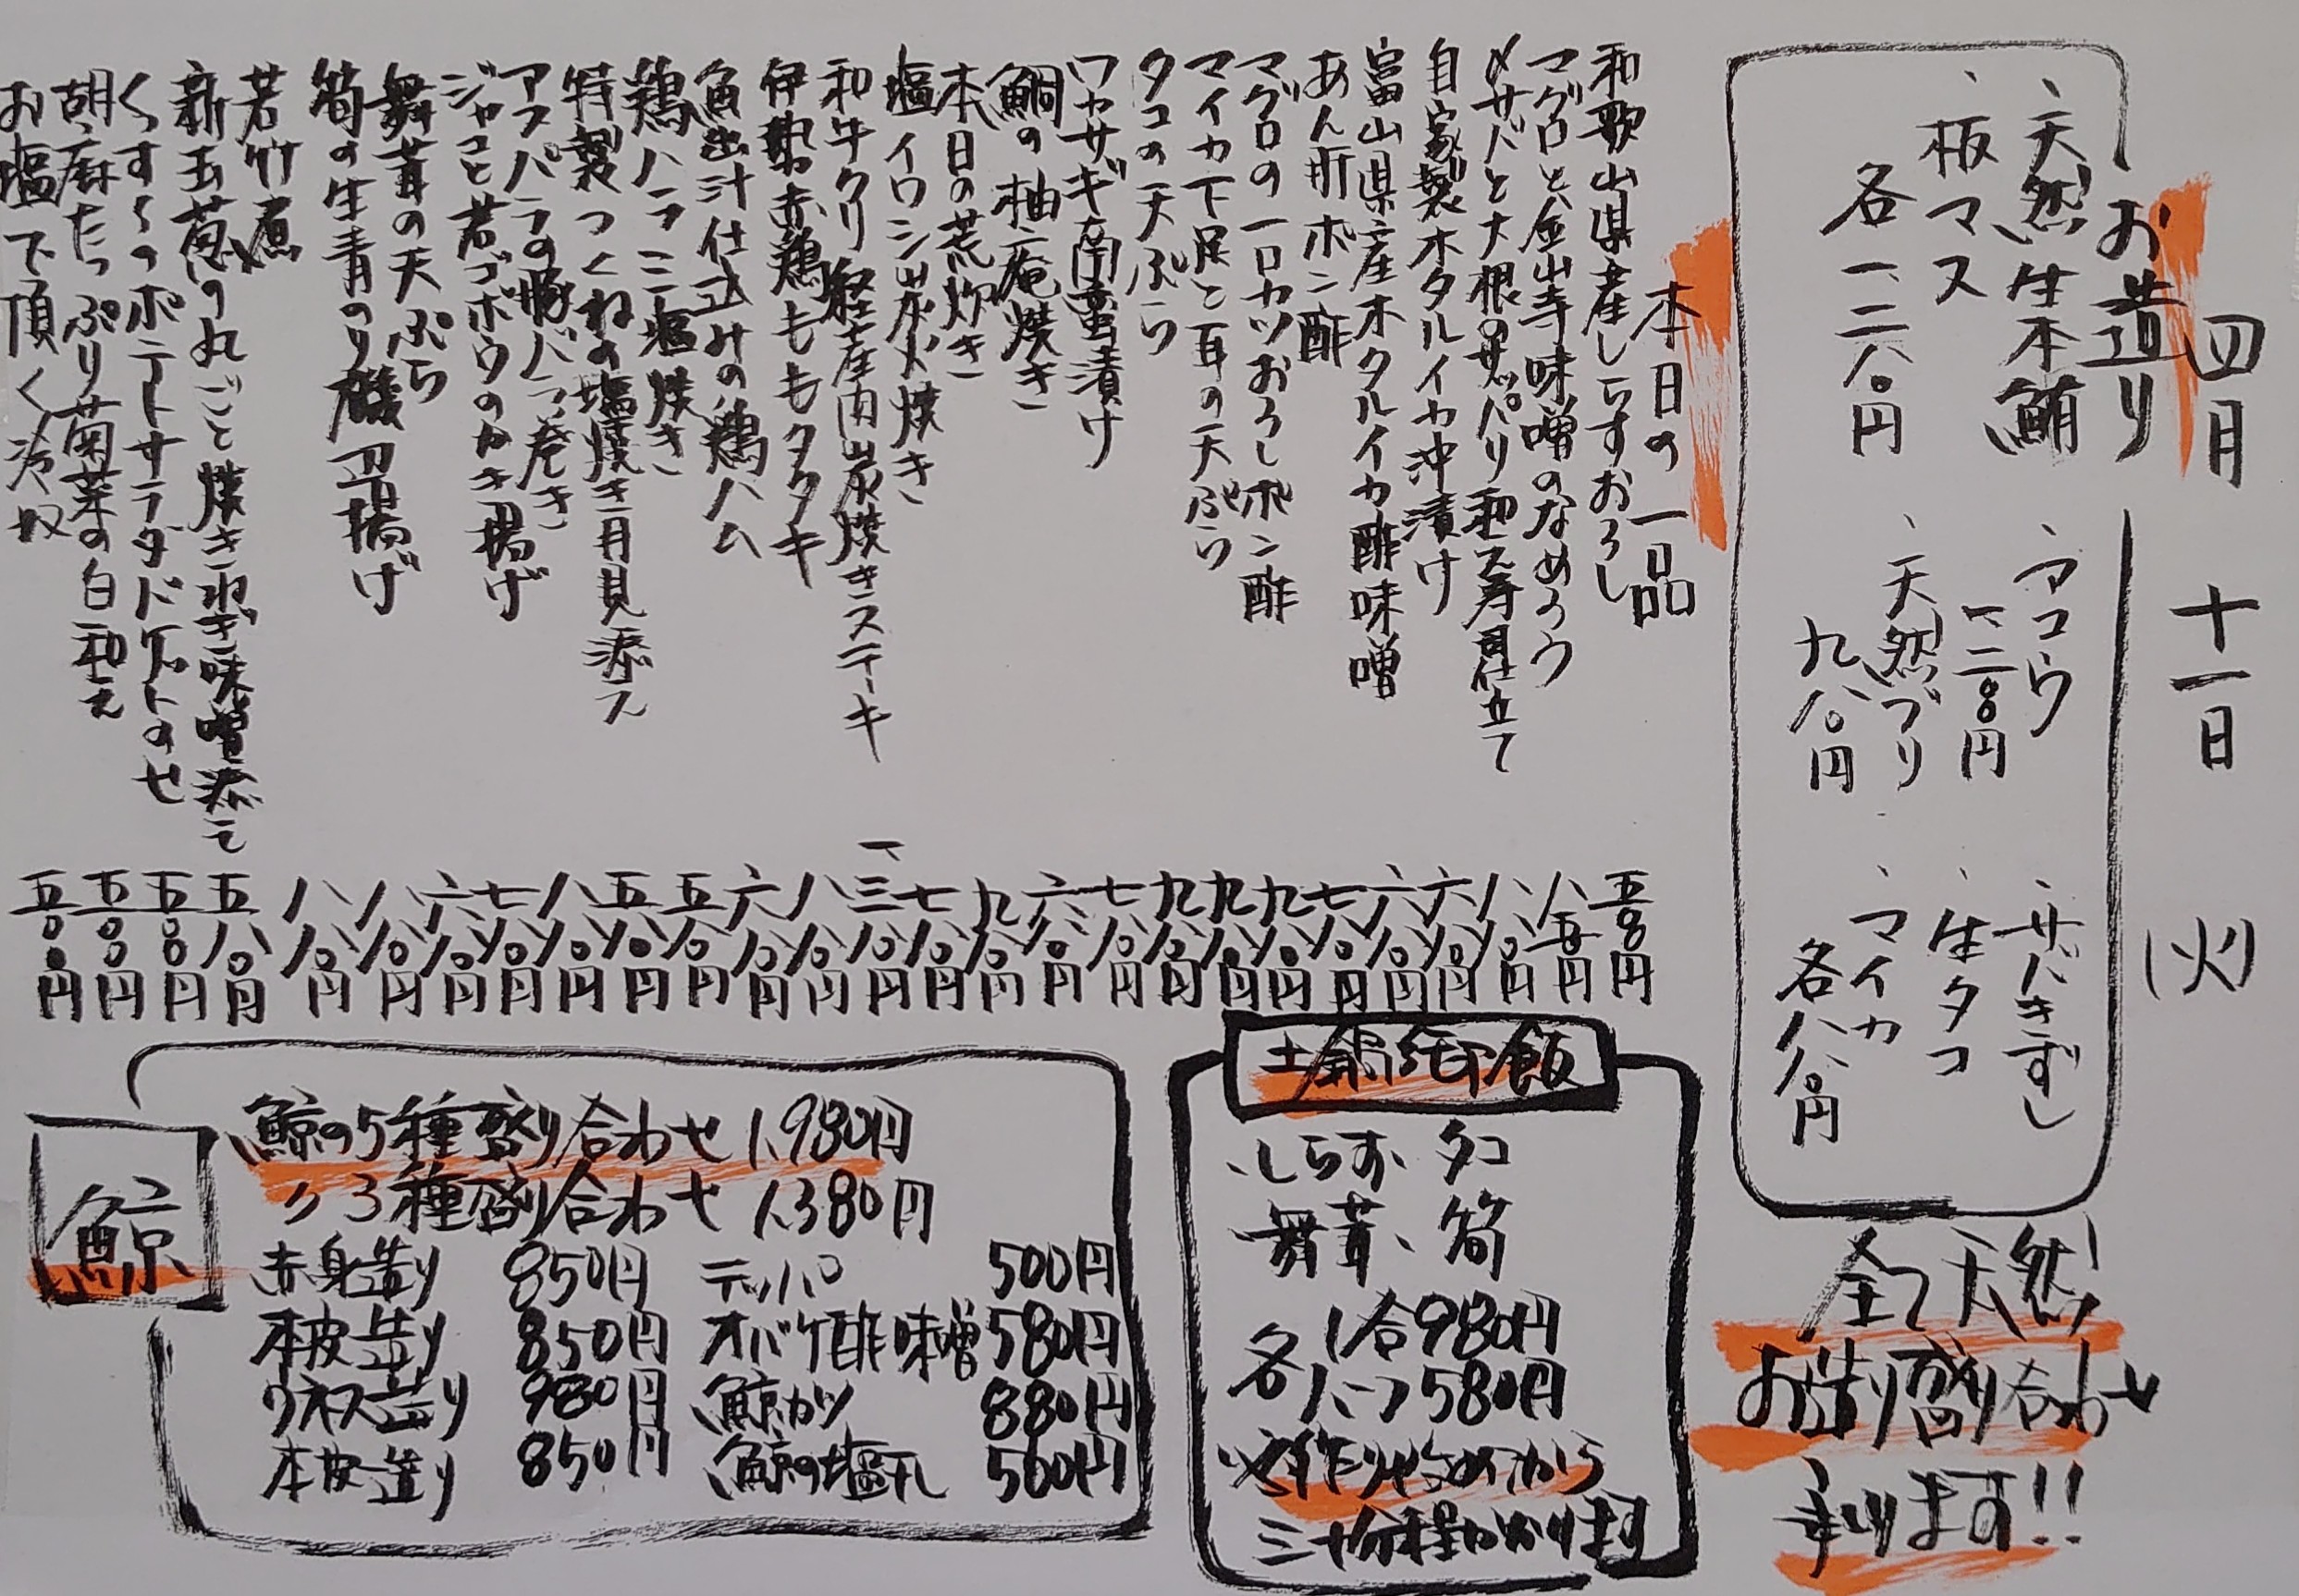 四月 十一日 (火)
お造り
、天然生本鮪
、板マス
各一二八〇円
、アコウ
一二八〇円
、天然ブリ
九八〇円
、サバきずし
、生タコ
、マイカ
各八八〇円
全て天然!
お造り盛り合わせ
承ります!!
本日の一品
和歌山県産しらすおろし 五〇〇円
マグロと金山寺味噌のなめろう 八五〇円
〆サバと大根のサッパリ和え寿司仕立て 八八〇円
自家製ホタルイカ沖漬け 六八〇円
富山県産ホタルイカ酢味噌 六八〇円
あん肝ポン酢 七八〇円
マグロの一口カツおろしポン酢 九八〇円
マイカ下足と耳の天ぷら 九八〇円
タコの天ぷら 九八〇円
ワカサギ南蛮漬け 七八〇円
鯛の柚庵焼き 六八〇円
本日の荒炊き 九八〇円
塩イワシ炭火焼き 七八〇円
和牛クリ 経産肉炭焼きステーキ 一、三八〇円
伊勢赤鶏ももタタキ 八八〇円
魚出汁仕込みの鶏ハム 六八〇円
鶏ハラミ塩焼き 五八〇円
特製つくねの塩焼き月見添え 五八〇円
アスパラの豚バラ巻き 八八〇円
ジャコと若ゴボウのかき揚げ 七八〇円
舞茸の天ぷら 六八〇円
筍の生青のり磯辺揚げ 八八〇円
若竹煮 八八〇円
新玉葱の丸ごと焼きねぎ味噌添え 五八〇円
くすくすのポテトサラダバゲットのせ 五〇〇円
胡麻たっぷり菊菜の白和え 五〇〇円
お塩で頂く冷奴 五〇〇円
土鍋御飯
、しらす、タコ
、舞茸、筍
各 1合980円
ハーフ580円
※作り始めから
三十分程かかります
鯨
鯨の5種盛り合わせ 1,980円
〃3種盛り合わせ 1,380円
赤身造り 850円 テッパ 500円
本皮造り 850円 オバケ酢味噌 580円
ウネス造り 980円 鯨カツ 880円
本皮造り 850円 鯨の塩干し 500円